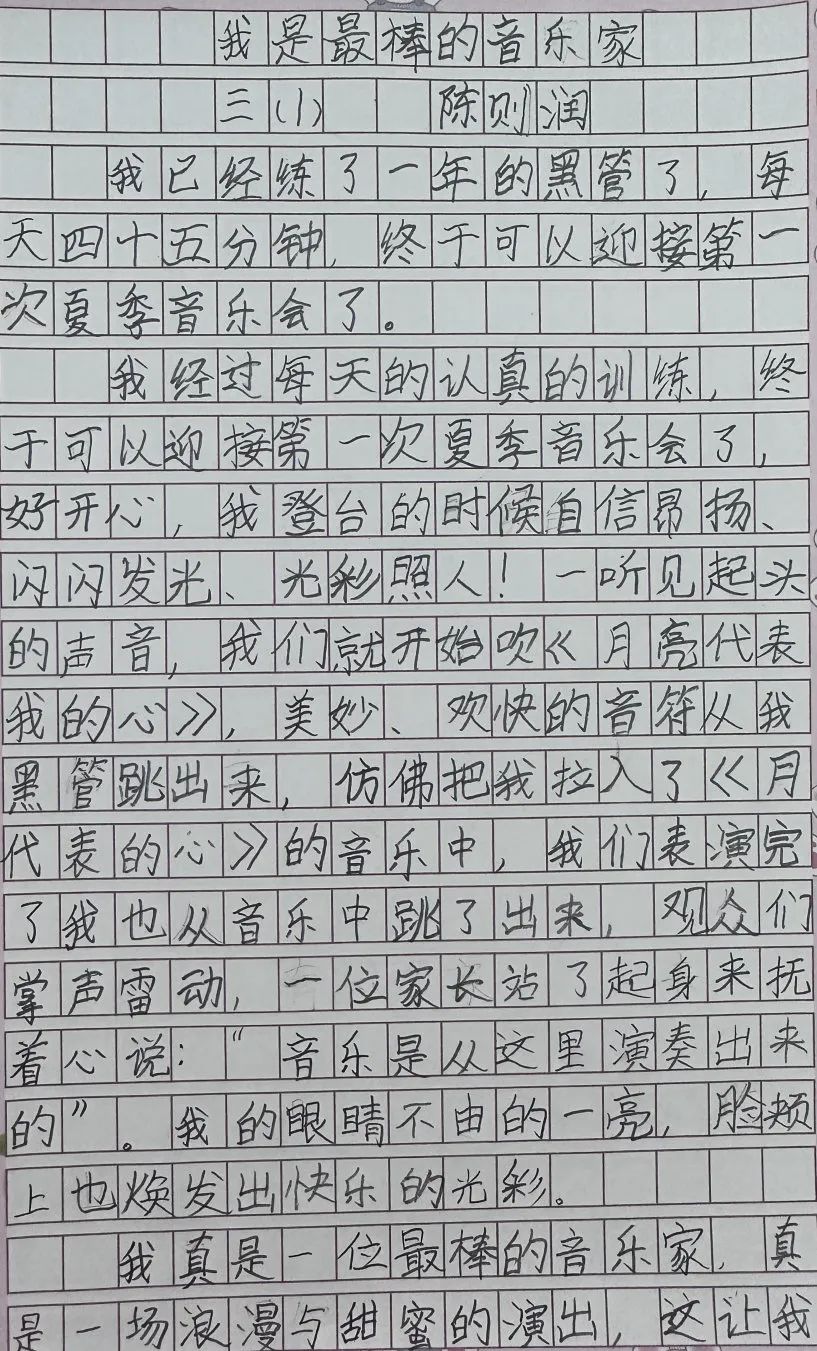 我是最棒的音乐家
三(1) 陈则润
我已经练了一年的黑管了,每
天四十五分钟,终于可以迎接第一
次夏季音乐会了。
我经过每天的认真的训练,终
于可以迎接第一次夏季音乐会了,
好开心,我登台的时候自信昂扬、
闪闪发光、光彩照人!一听见起头
的声音,我们就开始吹《月亮代表
我的心》,美妙、欢快的音符从我
黑管跳出来,仿佛把我拉入了《月
代表的心》的音乐中,我们表演完
了我也从音乐中跳了出来,观众们
掌声雷动,一位家长站了起身来抚
着心说:“音乐是从这里演奏出来
的”。我的眼睛不由的一亮,脸颊
上也焕发出快乐的光彩。
我真是一位最棒的音乐家,真
是一场浪漫与甜蜜的演出,这让我